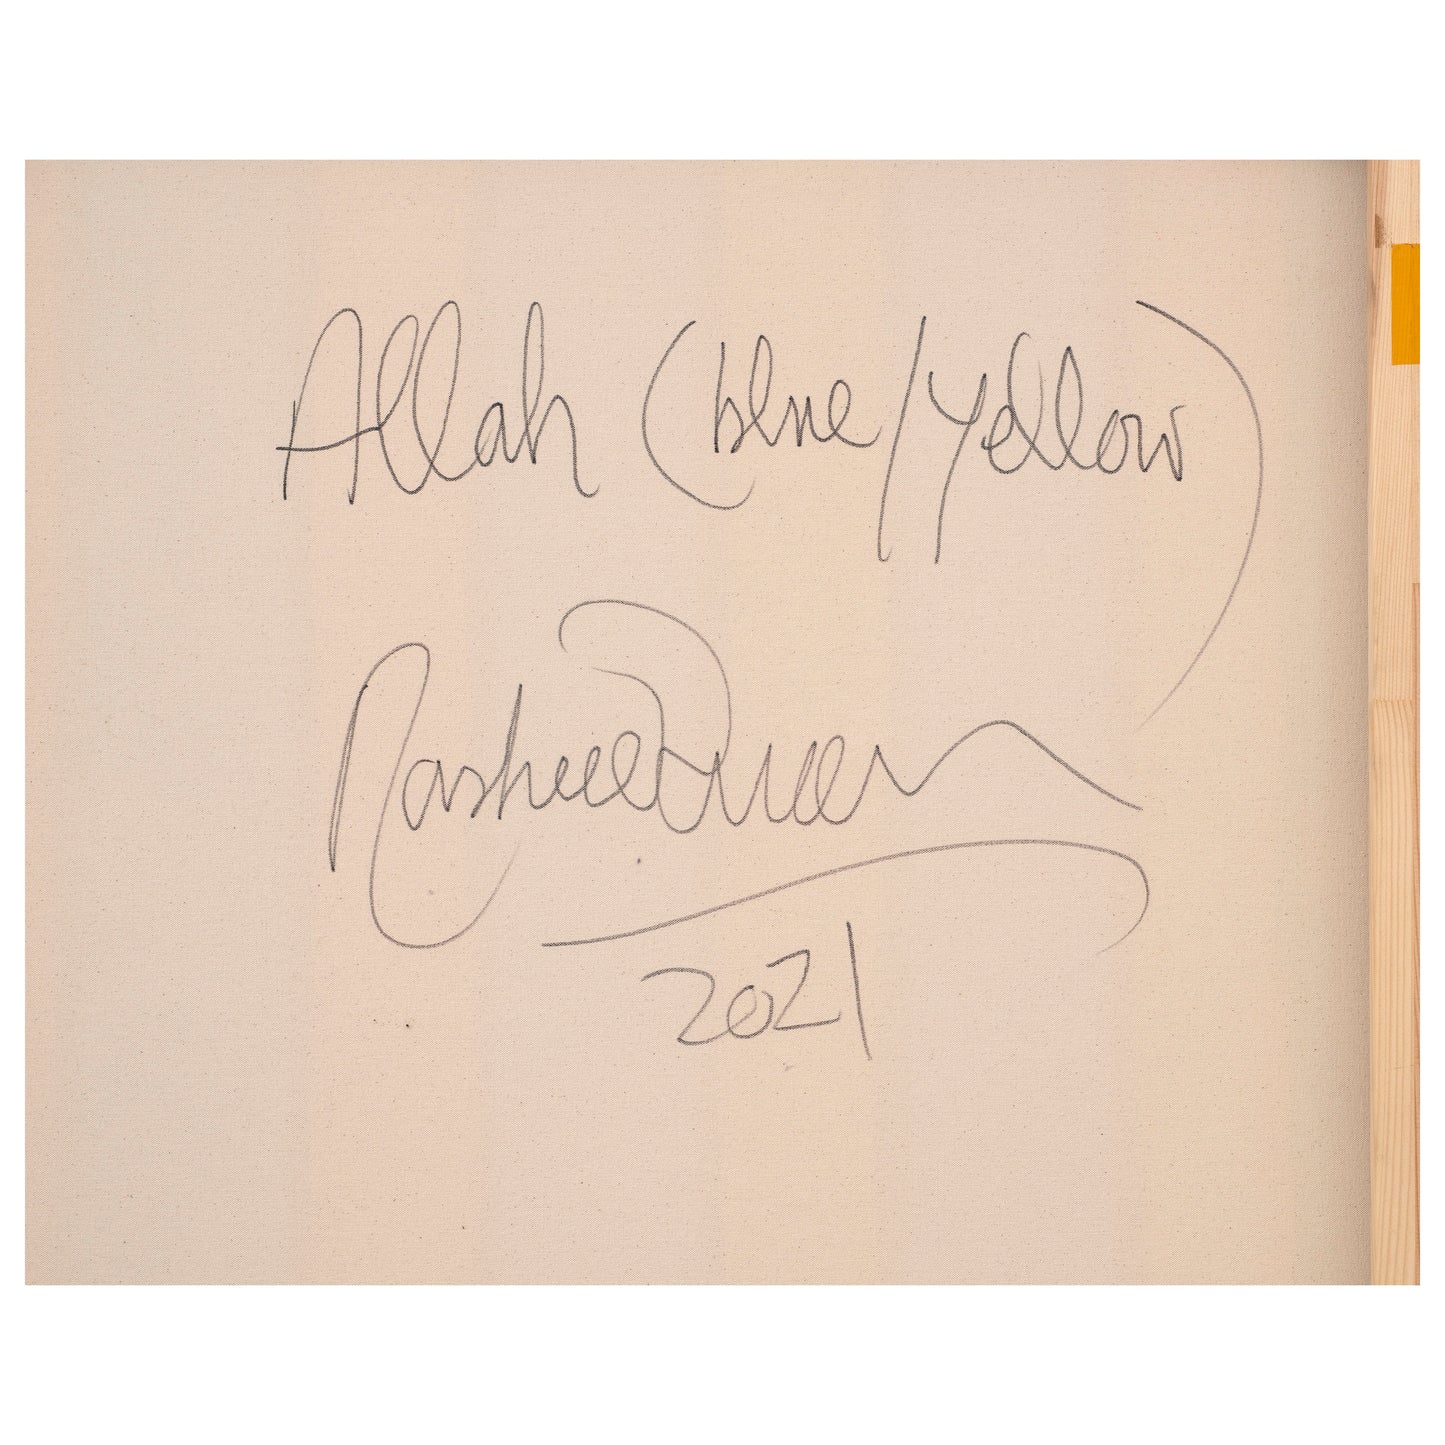 Allah (blue/yellow)
Rasheed
2021